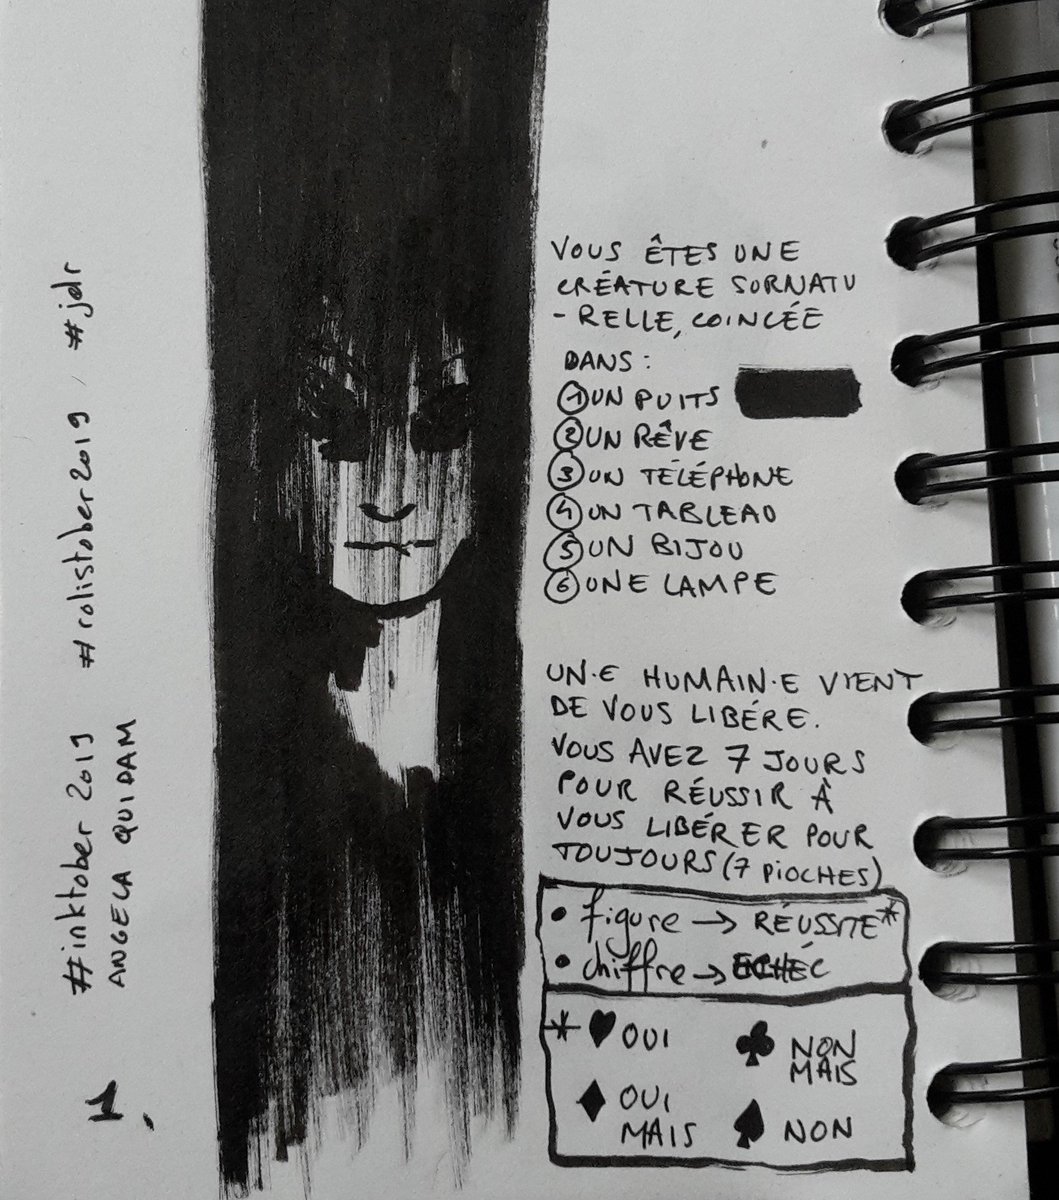 #inktober 2019 #rolistober2019 / #jdr
ANGELA QUIDAM
1.
VOUS ÊTES UNE
CRÉATURE SURNATU
- RELLE, COINCÉE
DANS :
① UN PUITS
② UN RÊVE
③ UN TÉLÉPHONE
④ UN TABLEAU
⑤ UN BIJOU
⑥ UNE LAMPE
UN·E HUMAIN·E VIENT
DE VOUS LIBÉRE.
VOUS AVEZ 7 JOURS
POUR RÉUSSIR À
VOUS LIBÉRER POUR
TOUJOURS (7 PIOCHES)
• figure → RÉUSSITE*
• chiffre → ECHÉC
* ♥ OUI
♣ NON
MAIS
♦ OUI
MAIS
♠ NON